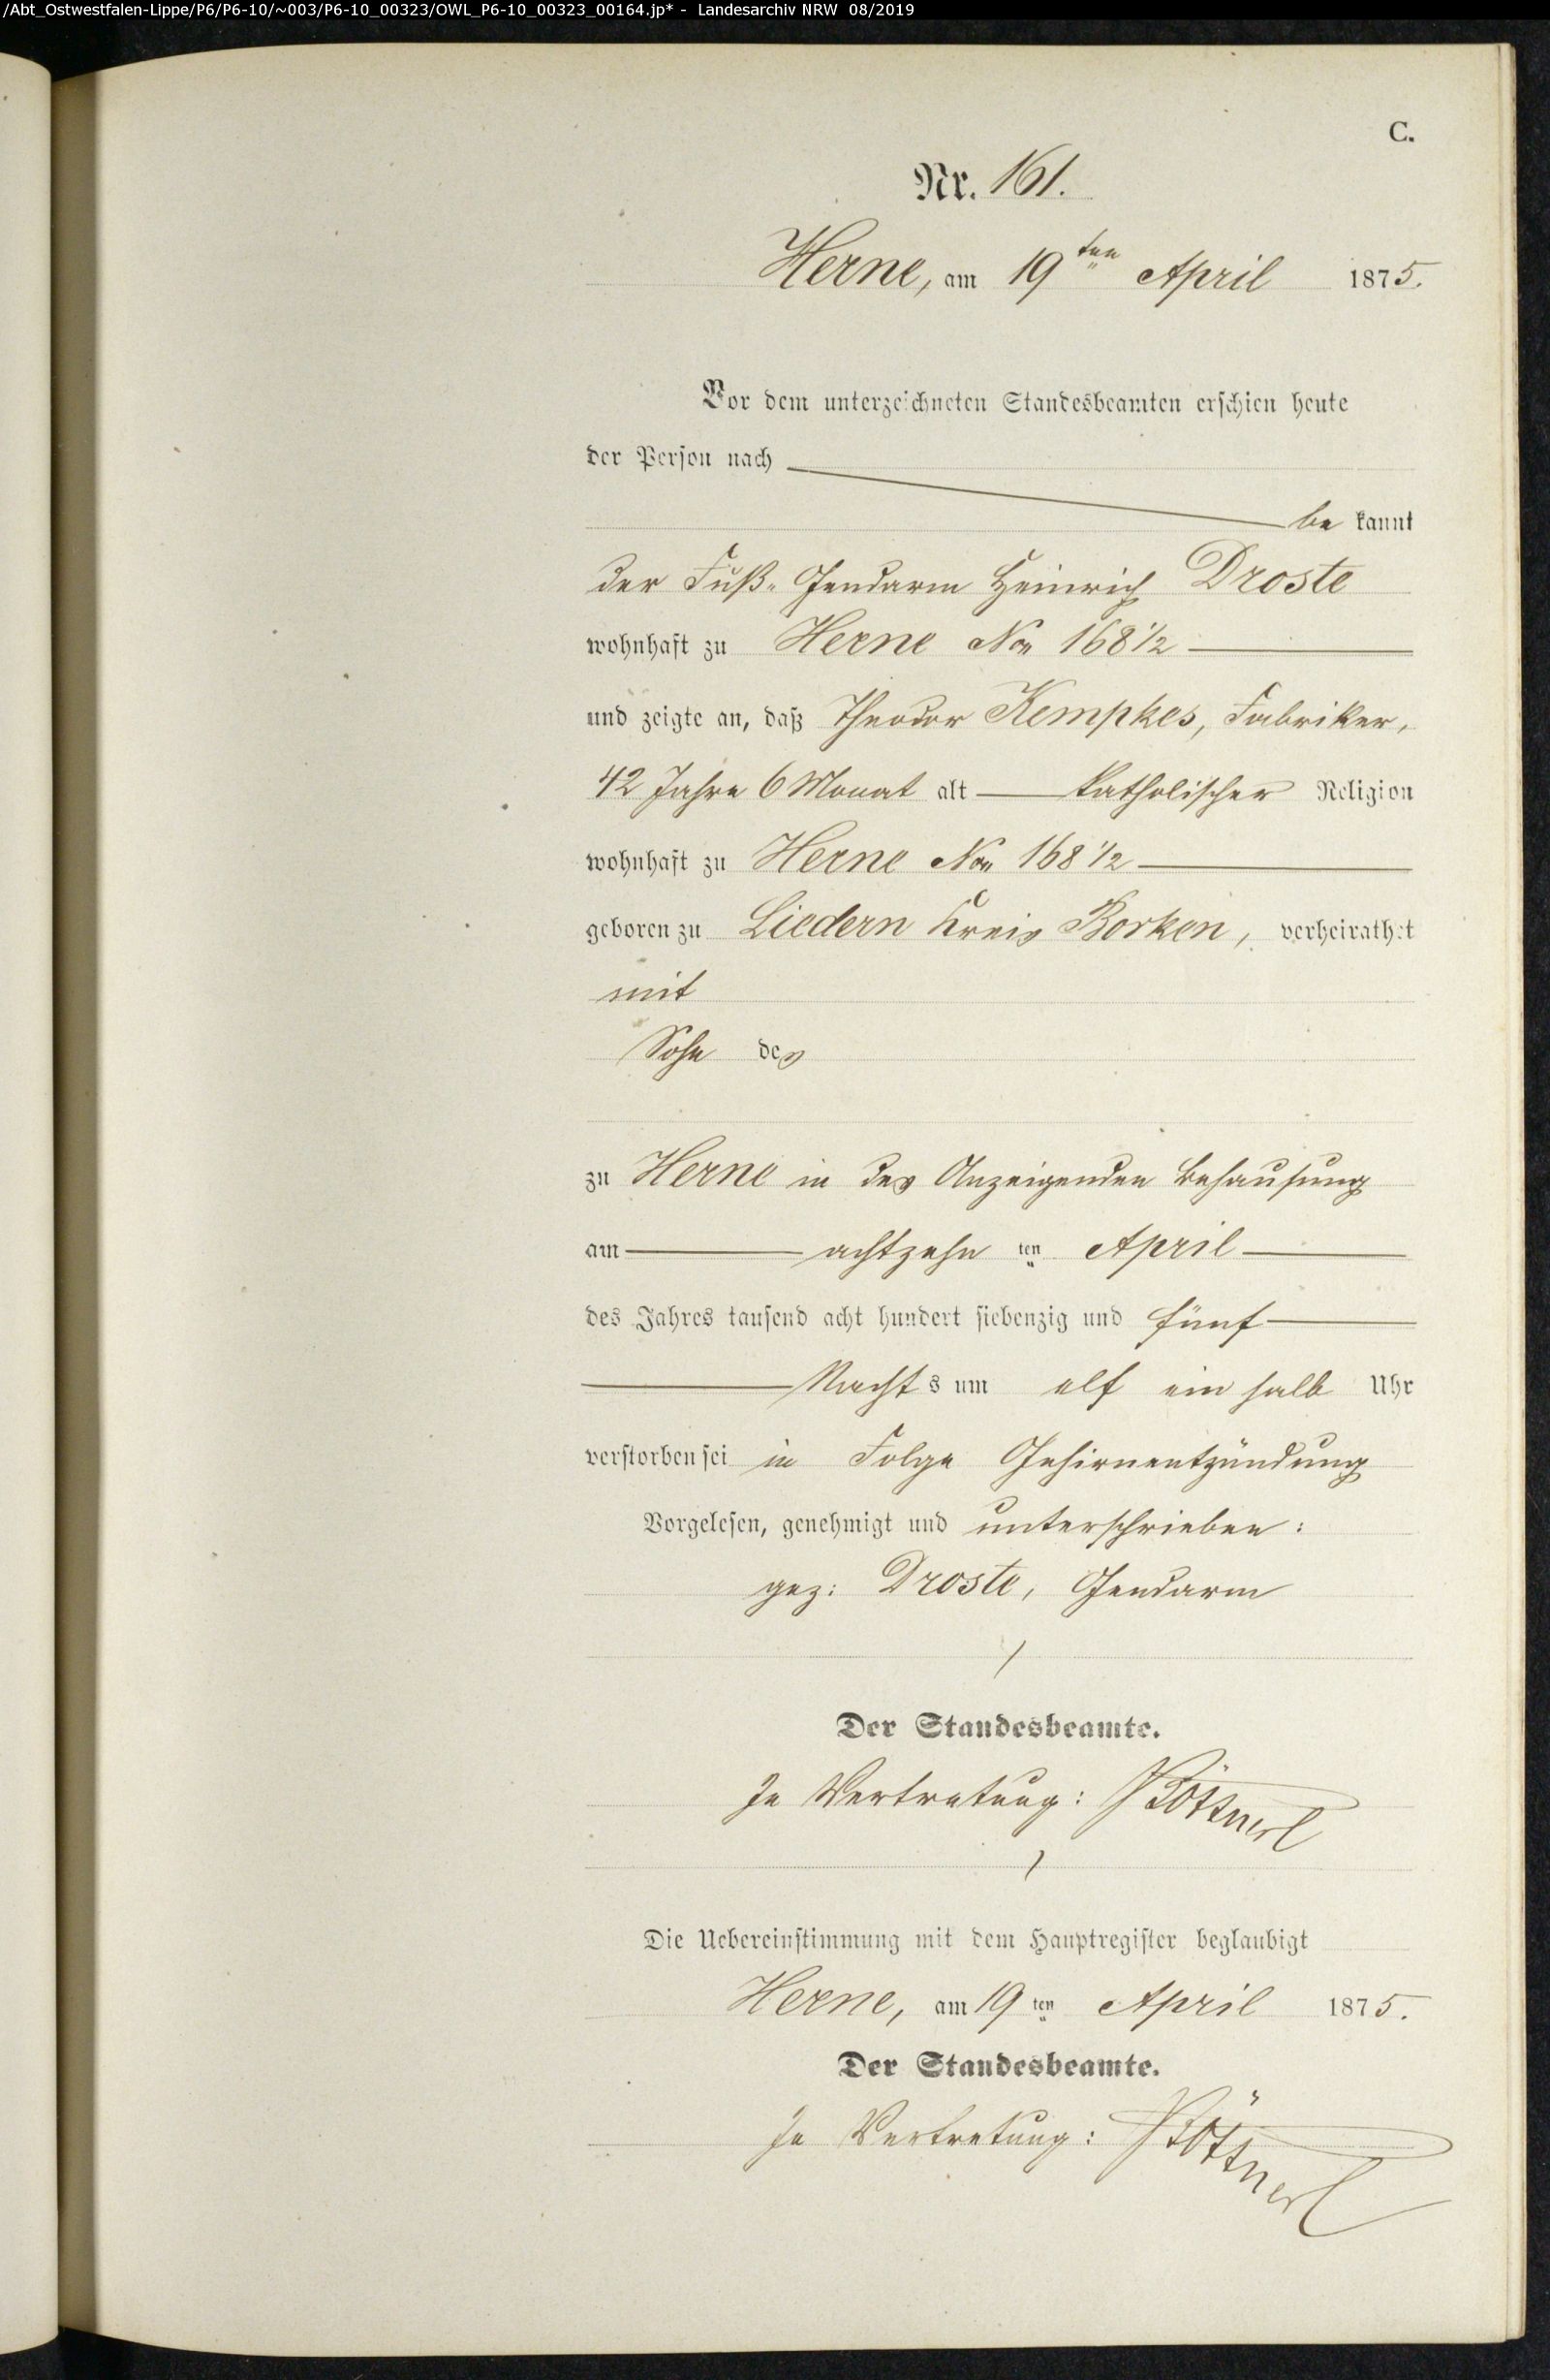 /Abt_Ostwestfalen-Lippe/P6/P6-10/~003/P6-10_00323/OWL_P6-10_00323_00164.jp* - Landesarchiv NRW 08/2019
C.
Nr. 161.
Herne, am 19ten April 1875.
Vor dem unterzeichneten Standesbeamten erschien heute
der Person nach
be kannt
der Fuß-Gendarm Heinrich Droste
wohnhaft zu Herne No 168 1/2
und zeigte an, daß Theodor Kempkes, Fabriker,
42 Jahre 6 Monat alt katholischer Religion
wohnhaft zu Herne No 168 1/2
geboren zu Liedern Kreis Borken, verheirathet
mit
Sohn des
zu Herne in des Anzeigenden Behausung
am achtzehn ten April
des Jahres tausend acht hundert siebenzig und fünf
Nachts um elf ein halb Uhr
verstorben sei in Folge Gehirnentzündung
Vorgelesen, genehmigt und unterschrieben:
gez: Droste, Gendarm
Der Standesbeamte.
In Vertretung:
Die Uebereinstimmung mit dem Hauptregister beglaubigt
Herne, am 19 ten April 1875.
Der Standesbeamte.
In Vertretung: